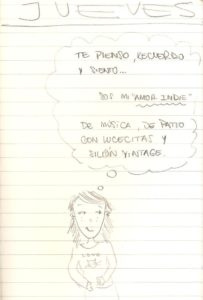 JUEVES
TE PIENSO, RECUERDO
Y SIENTO...
SOS MI "AMOR INDIE"
DE MUSICA, DE PATIO
CON LUCECITAS Y
SILLÓN VINTAGE.
LOVE